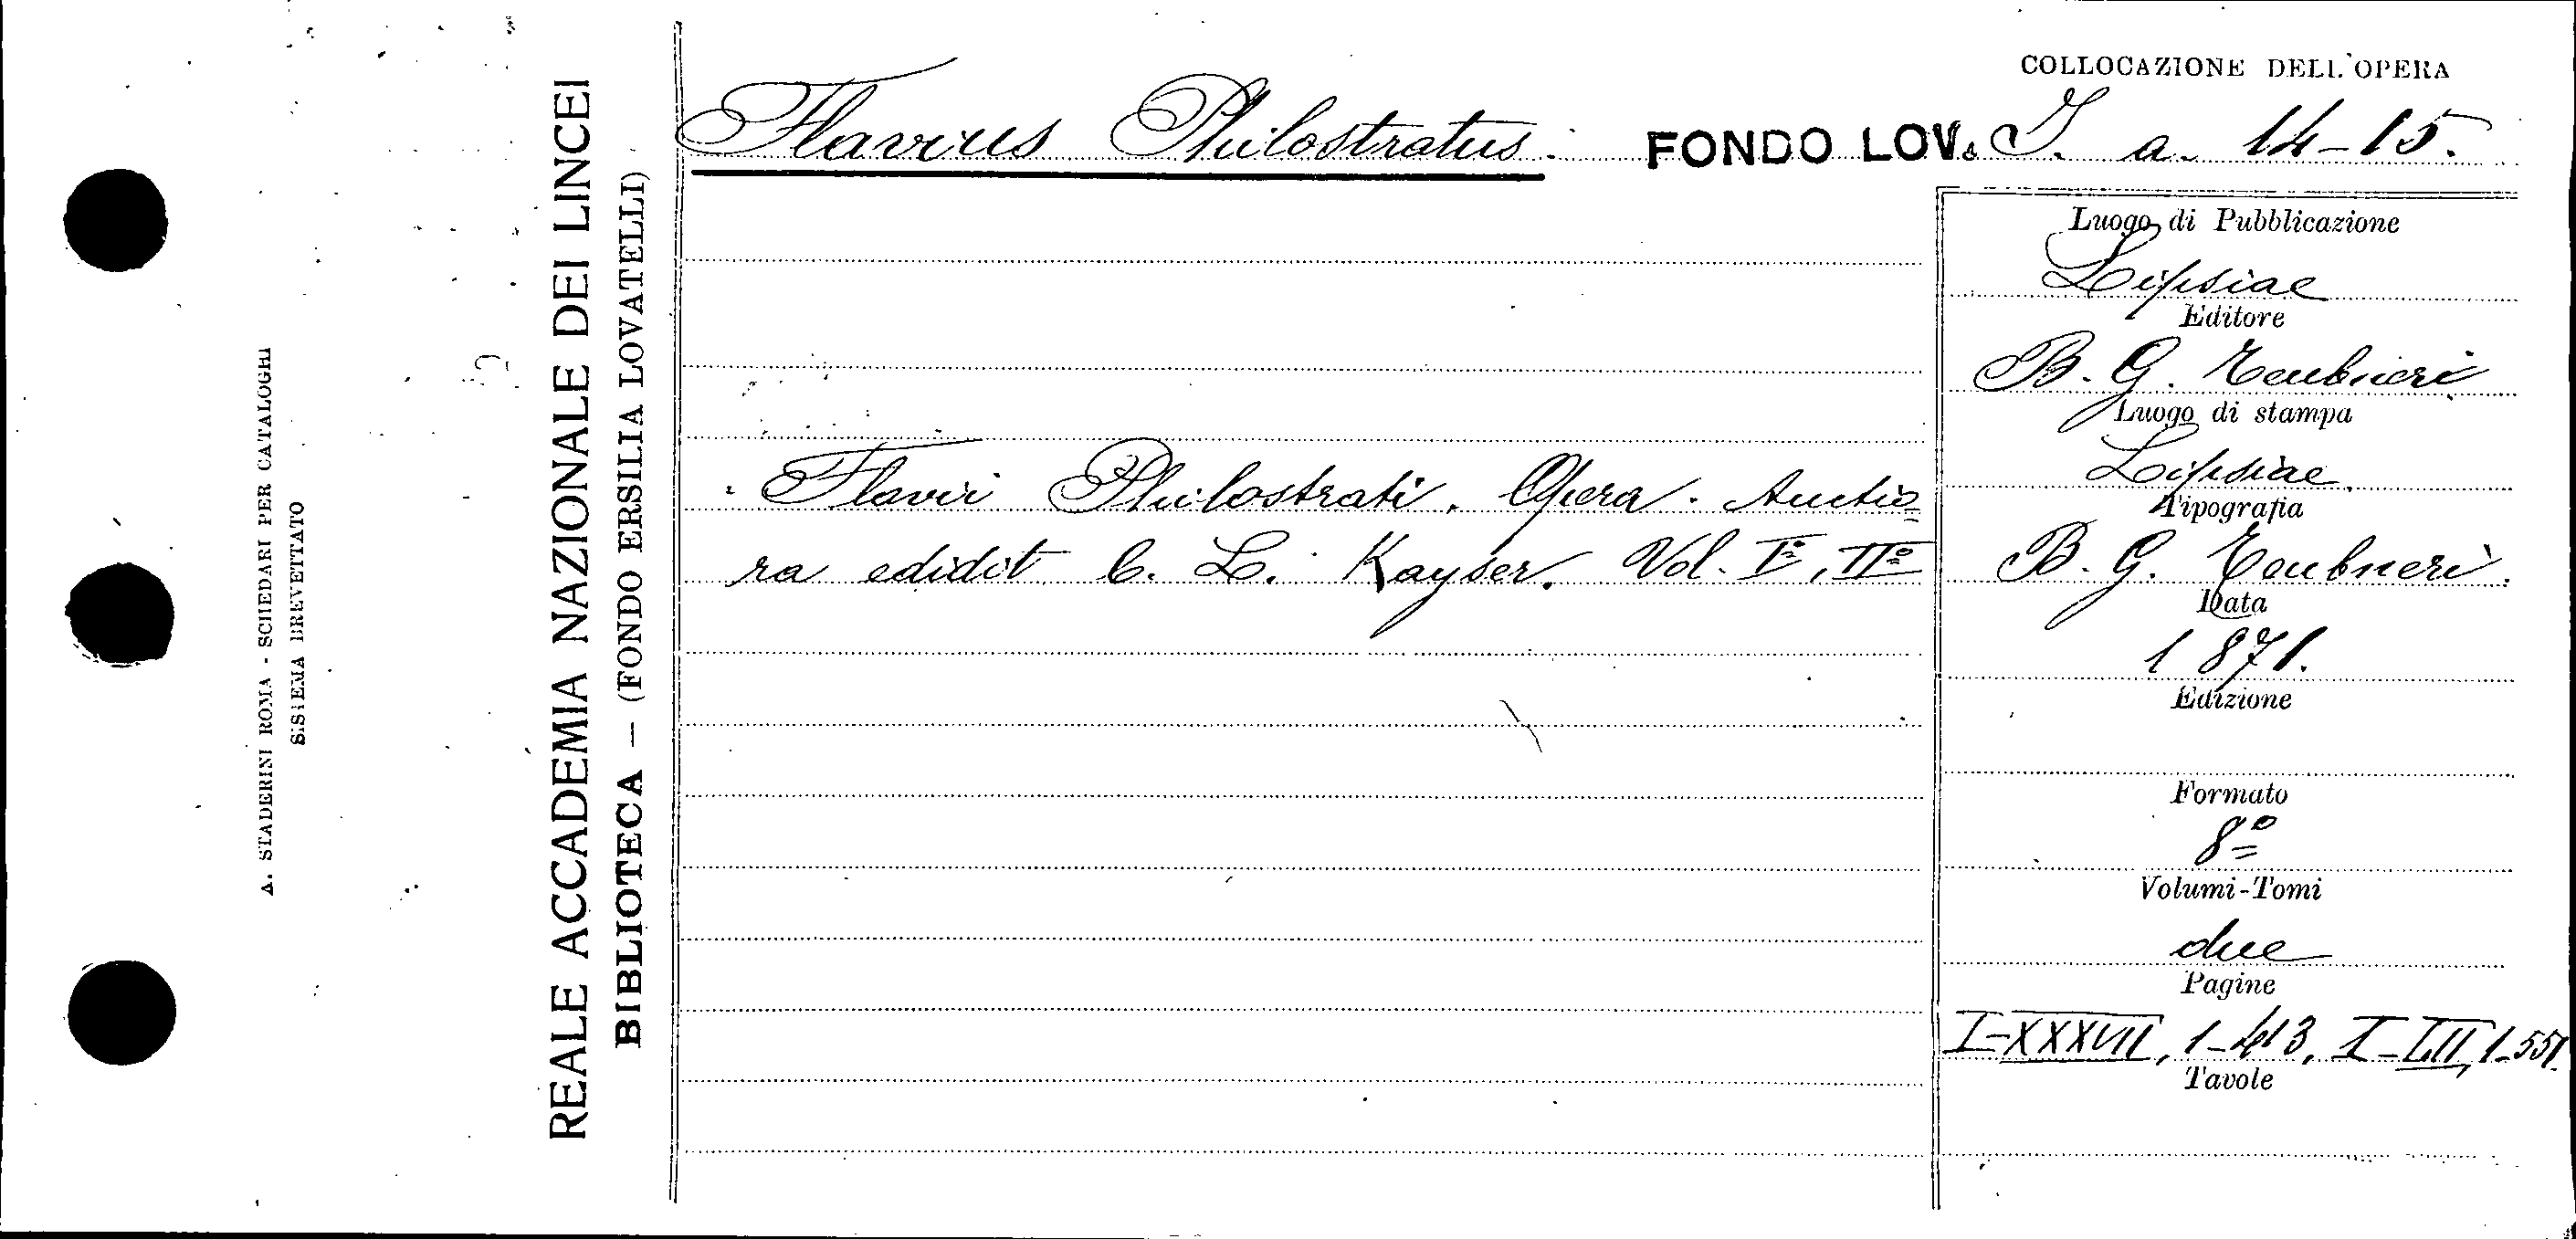 A. STADERINI ROMA - SCHEDARI PER CATALOGHI
SISTEMA BREVETTATO
REALE ACCADEMIA NAZIONALE DEI LINCEI
BIBLIOTECA — (FONDO ERSILIA LOVATELLI)
COLLOCAZIONE DELL'OPERA
Flavius Philostratus. FONDO LOV. I. a. 14-15.
Flavii Philostrati. Opera. Auctio=
ra edidit C. L. Kayser. Vol. I°, II°
Luogo di Pubblicazione
Lipsiae
Editore
B. G. Teubneri
Luogo di stampa
Lipsiae.
Tipografia
B. G. Teubneri.
Data
1871.
Edizione
Formato
8°
Volumi-Tomi
due
Pagine
I-XXXVII, 1-413, I-LII, 1-551.
Tavole